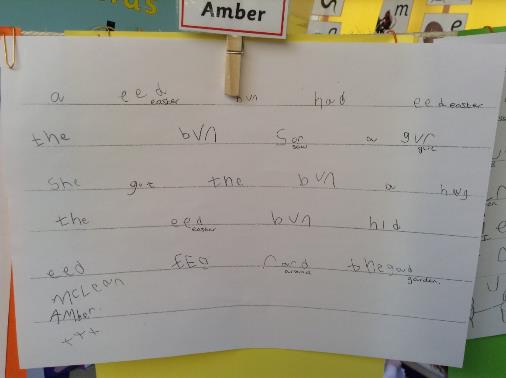 Amber
a eed easter bvn had eed easter
the bvn Sor saw a gvr girl
She gut the bvn a hug
the eed easter bvn hid
eed EEg rard around thegad garden.
McLean
AMber.
+++